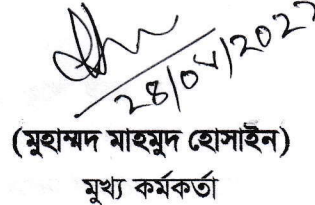 28/04/2022
(মুহাম্মদ মাহমুদ হোসাইন)
মুখ্য কর্মকর্তা